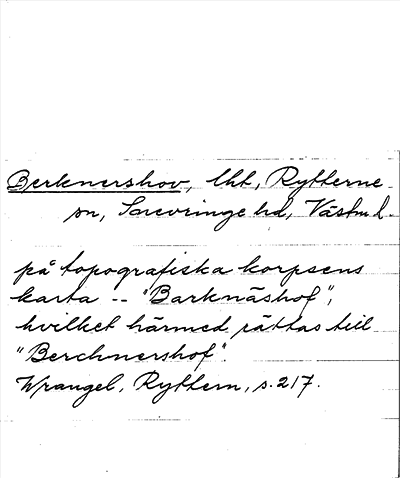 Berknershov, lht, Rytterne
sn, Snevringe hd, Västml.
på topografiska korpsens
karta -- "Barknäshof",
hvilket härmed rättas till
"Berchnershof".
Wrangel, Ryttern, s. 217.